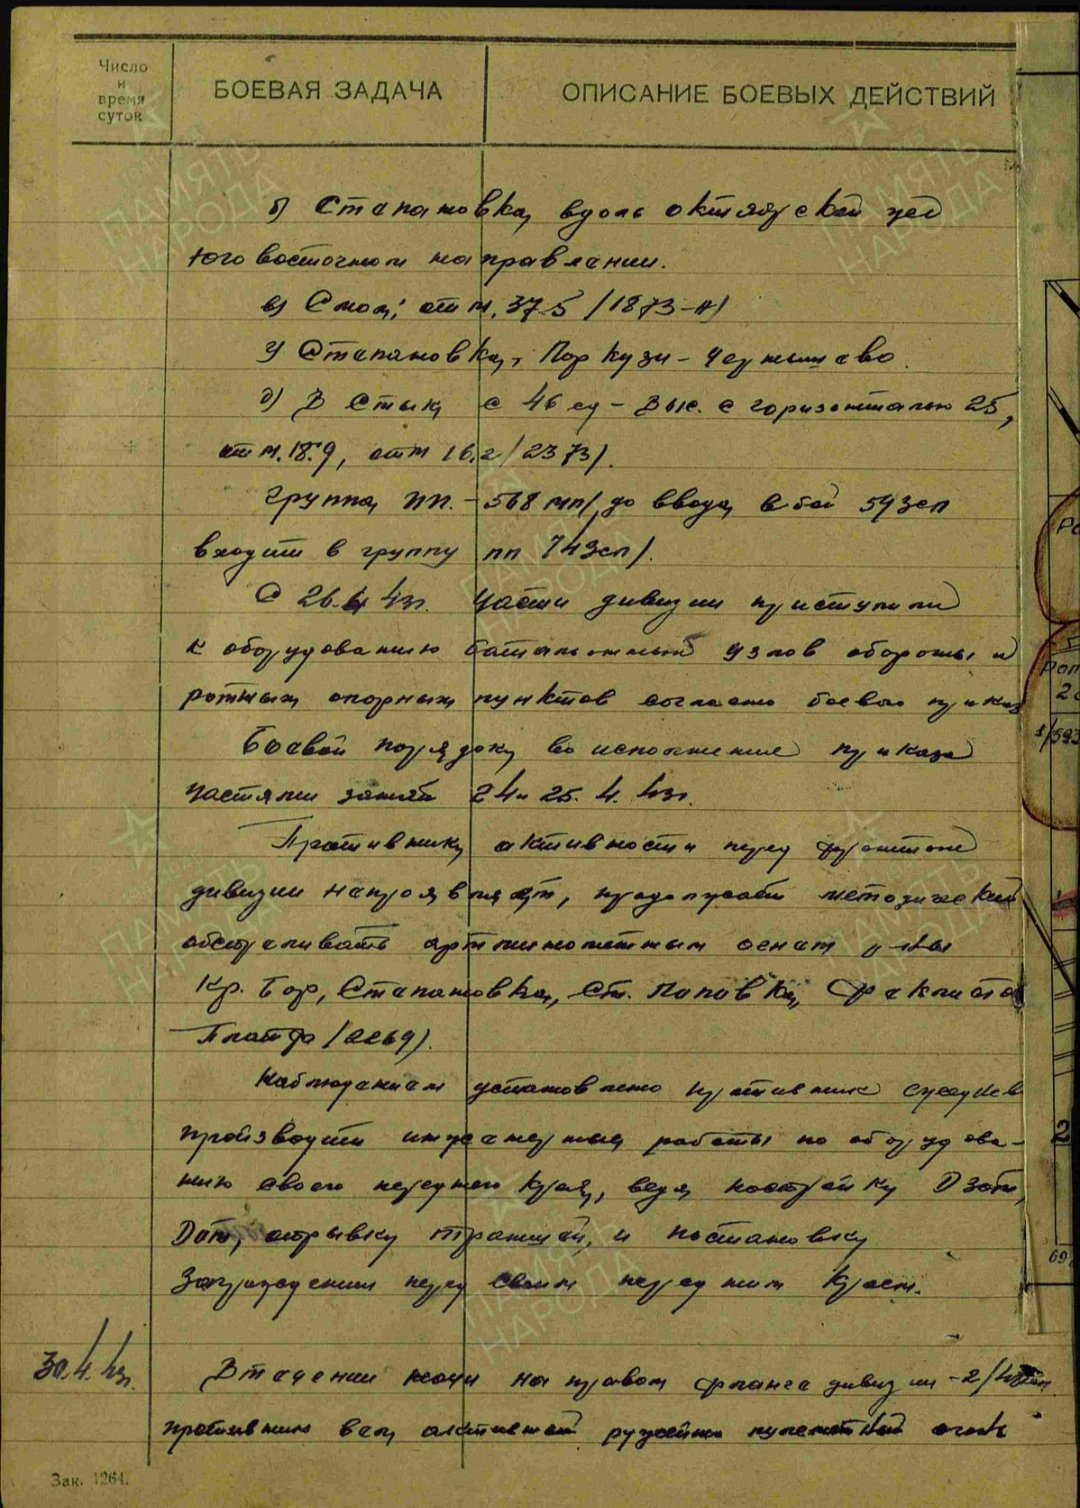 Число
и
время
суток
БОЕВАЯ ЗАДАЧА
ОПИСАНИЕ БОЕВЫХ ДЕЙСТВИЙ
б) Степановка, вдоль октябрьской жел
юго восточном направлении.
в) отм. 37,5 /1873-
г) Степановка, Пор кузи - Чернышево.
д) В стык с 46 сд - выс. с горизонталью 25,
отм. 18.9, отм 16,2 /2373/.
Группа ПП. - 568 мп/до ввода в бой 594 зсп
входит в группу пп 74 зсп/.
С 26.4 43г. части дивизии приступили
к оборудованию батальонных узлов обороны и
ротных опорных пунктов согласно боевого приказ
Боевой порядок, во исполнение приказа
частями занят 24 и 25. 4. 43г.
Противник, активности перед фронтом
дивизии непроявляет, продолжает методический
обстреливать артминометным огнем р-ны
Кр. Бор, Степановка, ст. Поповка,
/2269/.
Наблюдением установлено противник
производит инженерные работы по оборудова-
нию своего переднего края, ведя постройку Дзот,
Дот, отрывку траншей, и постановку
Заграждении перед своим передним краем.
30.4.43г.
В течении ночи на правом фланге дивизии - 2/
противник вел активный ружейно пулеметный огонь
Зак. 1264.
ПАМЯТЬ
НАРОДА